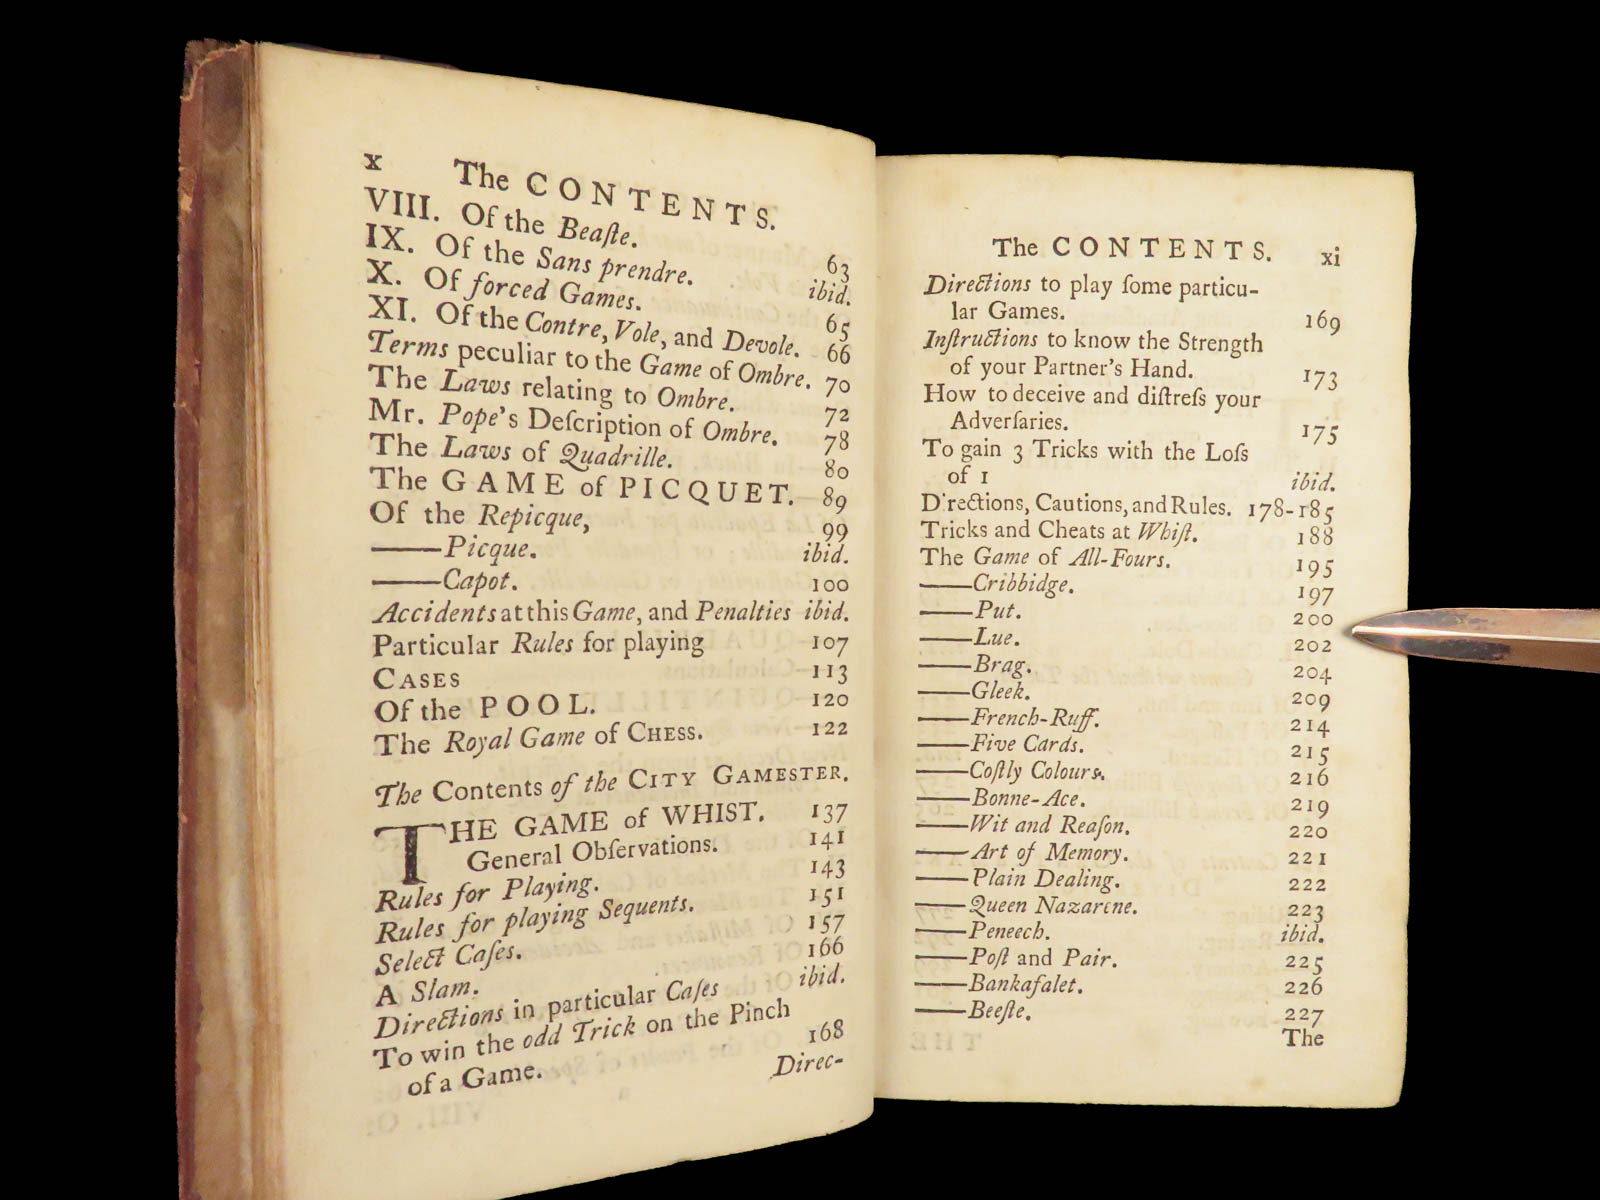 x The CONTENTS.
VIII. Of the Beaſte. 63
IX. Of the Sans prendre. ibid.
X. Of forced Games. 65
XI. Of the Contre, Vole, and Devole. 66
Terms peculiar to the Game of Ombre. 70
The Laws relating to Ombre. 72
Mr. Pope's Deſcription of Ombre. 78
The Laws of Quadrille. 80
The GAME of PICQUET. 89
Of the Repicque, 99
——Picque. ibid.
——Capot. 100
Accidents at this Game, and Penalties ibid.
Particular Rules for playing 107
CASES 113
Of the POOL. 120
The Royal Game of CHESS. 122
The Contents of the CITY GAMESTER.
THE GAME of WHIST. 137
General Obſervations. 141
Rules for Playing. 143
Rules for playing Sequents. 151
Select Caſes. 157
A Slam. 166
Directions in particular Caſes ibid.
To win the odd Trick on the Pinch
of a Game. 168
Direc-
The CONTENTS. xi
Directions to play ſome particu-
lar Games. 169
Inſtructions to know the Strength
of your Partner's Hand. 173
How to deceive and diſtreſs your
Adverſaries. 175
To gain 3 Tricks with the Loſs
of 1 ibid.
Directions, Cautions, and Rules. 178-185
Tricks and Cheats at Whiſt. 188
The Game of All-Fours. 195
——Cribbidge. 197
——Put. 200
——Lue. 202
——Brag. 204
——Gleek. 209
——French-Ruff. 214
——Five Cards. 215
——Coſtly Colours. 216
——Bonne-Ace. 219
——Wit and Reaſon. 220
——Art of Memory. 221
——Plain Dealing. 222
——Queen Nazarene. 223
——Peneech. ibid.
——Poſt and Pair. 225
——Bankafalet. 226
——Beeſte. 227
The